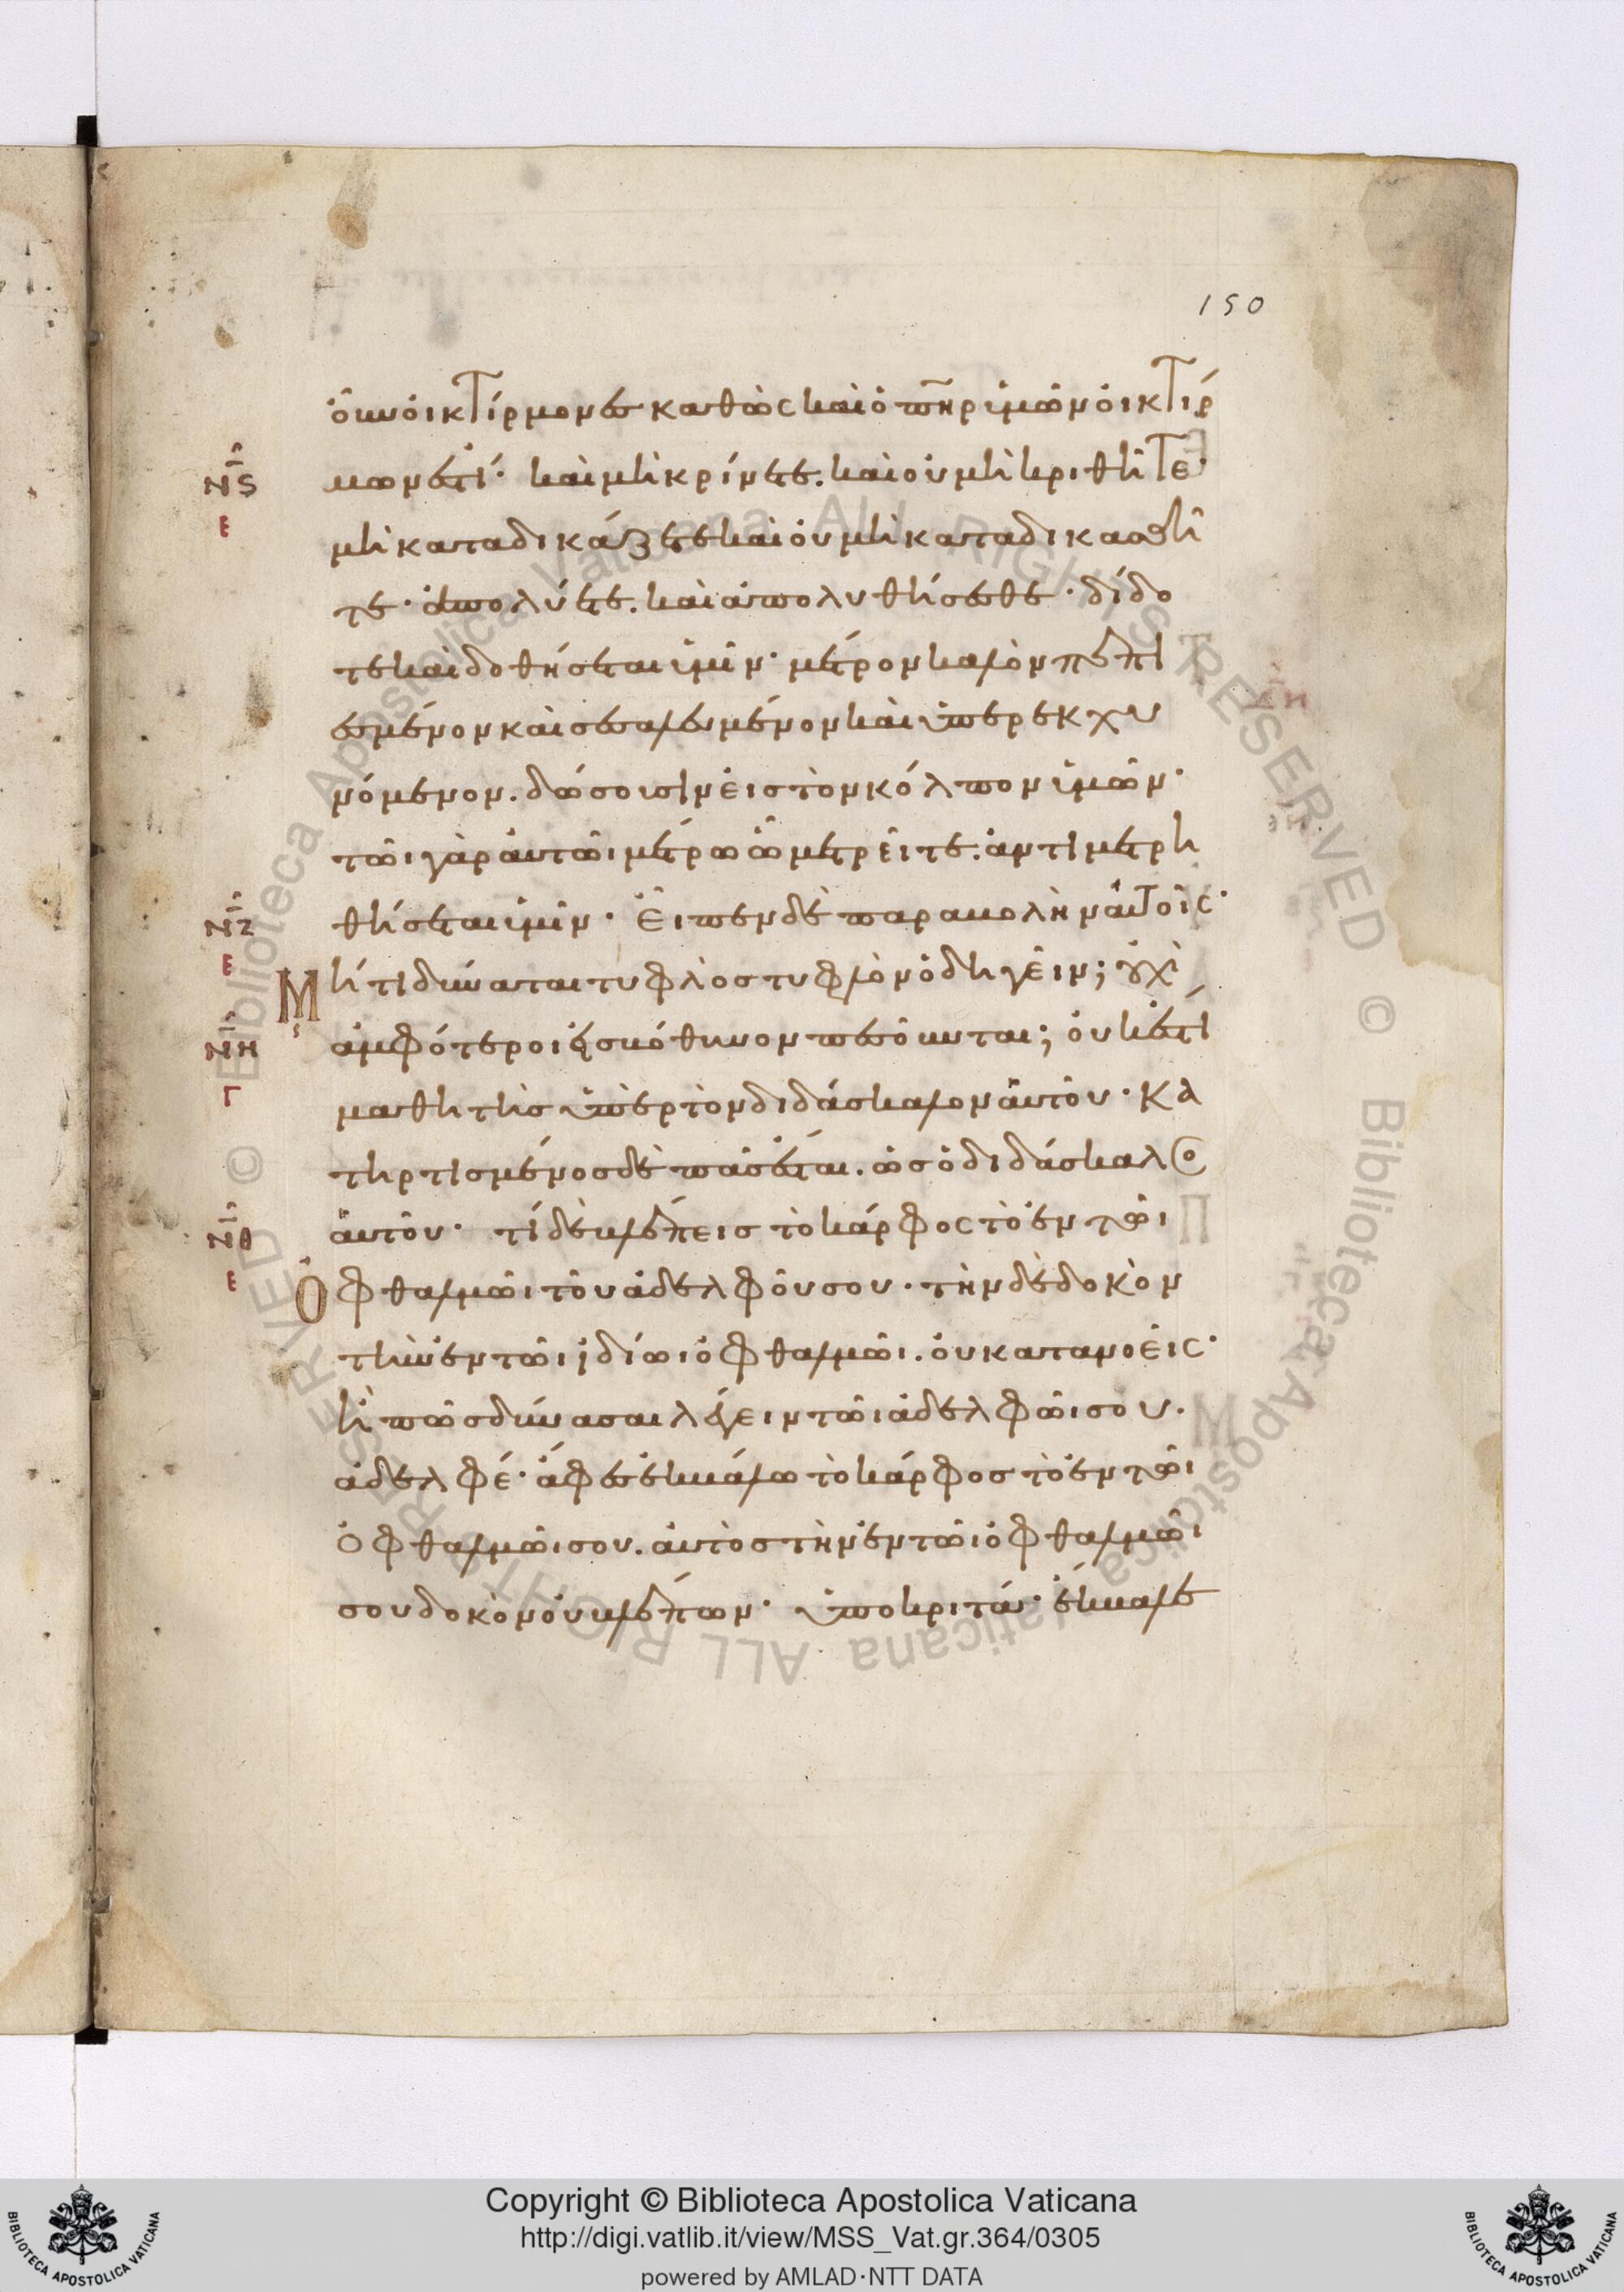 150
ὂυν ὀικτίρμονες καθὼς καὶ ὁ πηρ ὑμῶν ὀικτίρ
μων ἐστί· καὶ μὴ κρίνετε. καὶ οὐ μὴ κριθῆτε·
μὴ καταδικάζετε καὶ οὐ μὴ καταδικασθῆ
τε· ἀπολύετε. καὶ ἀπολυθήσεσθε· δίδο
τε καὶ δοθήσεται ὑμῖν· μέτρον καλὸν πεπι
εσμένον καὶ σεσαλευμένον καὶ ὑπερεκχυ
νόμενον. δώσουσιν εἰς τὸν κόλπον ὑμῶν·
τῶι γὰρ ἀυτῶι μέτρω ὧ μετρεῖτε. ἀντιμετρη
θήσεται ὑμῖν· Εἶπεν δὲ παραβολὴν ἀυτοῖς·
Μήτι δύναται τυφλὸς τυφλὸν ὁδηγεῖν; οὐχὶ
ἀμφότεροι εἰς βόθυνον πεσοῦνται; οὐκ ἔστι
μαθητὴς ὑπὲρ τὸν διδάσκαλον ἀυτοῦ· κα
τηρτισμένος δὲ πᾶς ἔσται. ὡς ὁ διδάσκαλος
ἀυτοῦ· τί δὲ βλέπεις τὸ κάρφος τὸ ἐν τῶι
Ὀφθαλμῶι τοῦ ἀδελφοῦ σου. τὴν δὲ δοκὸν
τὴν ἐν τῶι ἰδίωι ὀφθαλμῶι. οὐ κατανοεῖς·
ἢ πῶς δύνασαι λέγειν τῶι ἀδελφῶι σου.
ἀδελφέ· ἄφες ἐκβάλω τὸ κάρφος τὸ ἐν τῶι
ὀφθαλμῶι σου. ἀυτὸς τὴν ἐν τῶι ὀφθαλμῶι
σου δοκὸν οὐ βλέπων· ὑποκριτά· ἔκβαλε
ΝϚ
Ε
ΝΖ
Ε
ΝΗ
Γ
ΝΘ
Ε
Copyright © Biblioteca Apostolica Vaticana
http://digi.vatlib.it/view/MSS_Vat.gr.364/0305
powered by AMLAD·NTT DATA
BIBLIOTECA APOSTOLICA VATICANA
BIBLIOTECA APOSTOLICA VATICANA